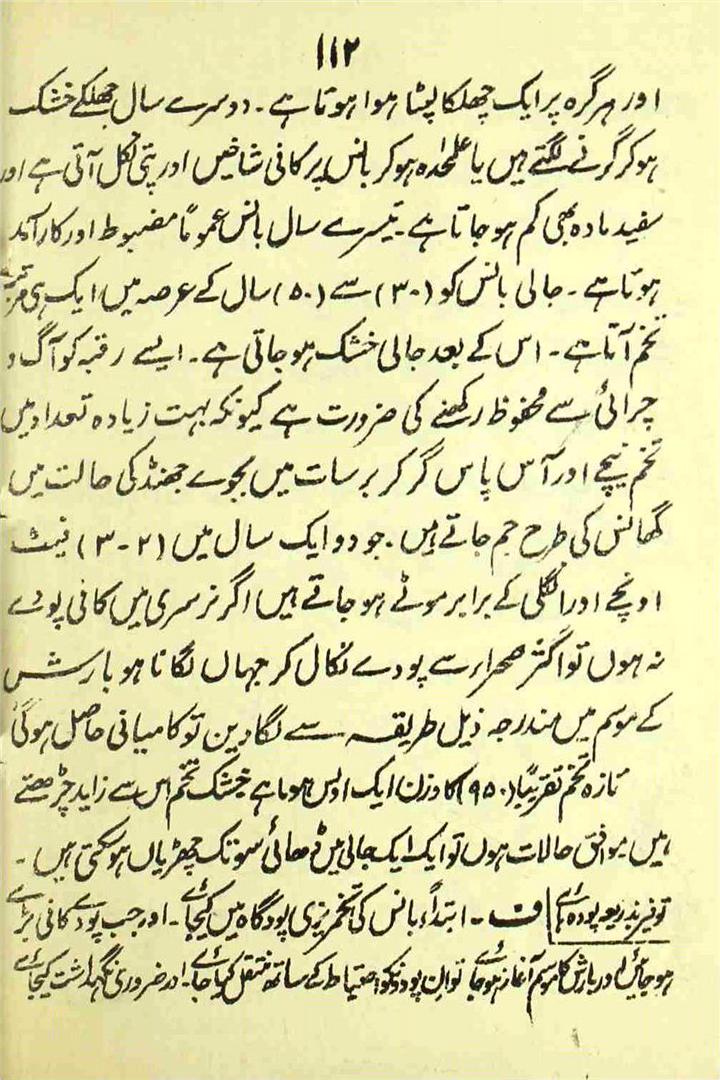 ۱۱۲
اور ہر گرہ پر ایک چھلکا پٹا ہوا ہوتا ہے۔ دوسرے سال چھلکے خشک
ہو کر گرنے لگتے ہیں یا علحدہ ہو کر بانس پر کافی شاخیں اور پتی نکل آتی ہے اور
سفید مادہ بھی کم ہو جاتا ہے۔ تیسرے سال بانس عموماً مضبوط اور کارآمد
ہوتا ہے۔ جالی بانس کو (۳۰) سے (۵۰) سال کے عرصہ میں ایک ہی مرتبہ
تخم آتا ہے۔ اس کے بعد جالی خشک ہو جاتی ہے۔ ایسے رقبہ کو آگ و
چرائی سے محفوظ رکھنے کی ضرورت ہے کیونکہ بہت زیادہ تعداد میں
تخم نیچے اور آس پاس گر کر برسات میں بجوے جھنڈ کی حالت میں
گھانس کی طرح جم جاتے ہیں۔ جو دو ایک سال میں (۲-۳) فیٹ
اونچے اور انگلی کے برابر موٹے ہو جاتے ہیں اگر نرسری میں کافی پودے
نہ ہوں تو اکثر صحراء سے پودے نکال کر جہاں لگانا ہو بارش
کے موسم میں مندرجہ ذیل طریقہ سے لگا دین تو کامیابی حاصل ہوگی
تازہ تخم تقریباً (۹۵۰) کا وزن ایک اونس ہوتا ہے خشک تخم اس سے زاید چڑھتے
ہیں موافق حالات ہوں تو ایک ایک جالی میں ڈھائی سو تک چھڑیاں ہو سکتی ہیں۔
توفیر بذریعہ پودہ ہائے ف۔ ابتداً بانس کی تخمریزی پودگاہ میں کیجائے۔ اور جب پودے کافی بڑے
ہو جائیں اور بارش کا موسم آغاز ہو جائے تو ان پودونکو احتیاط کے ساتھ منتقل کیا جائے۔ اور ضروری نگہداشت کیجائے